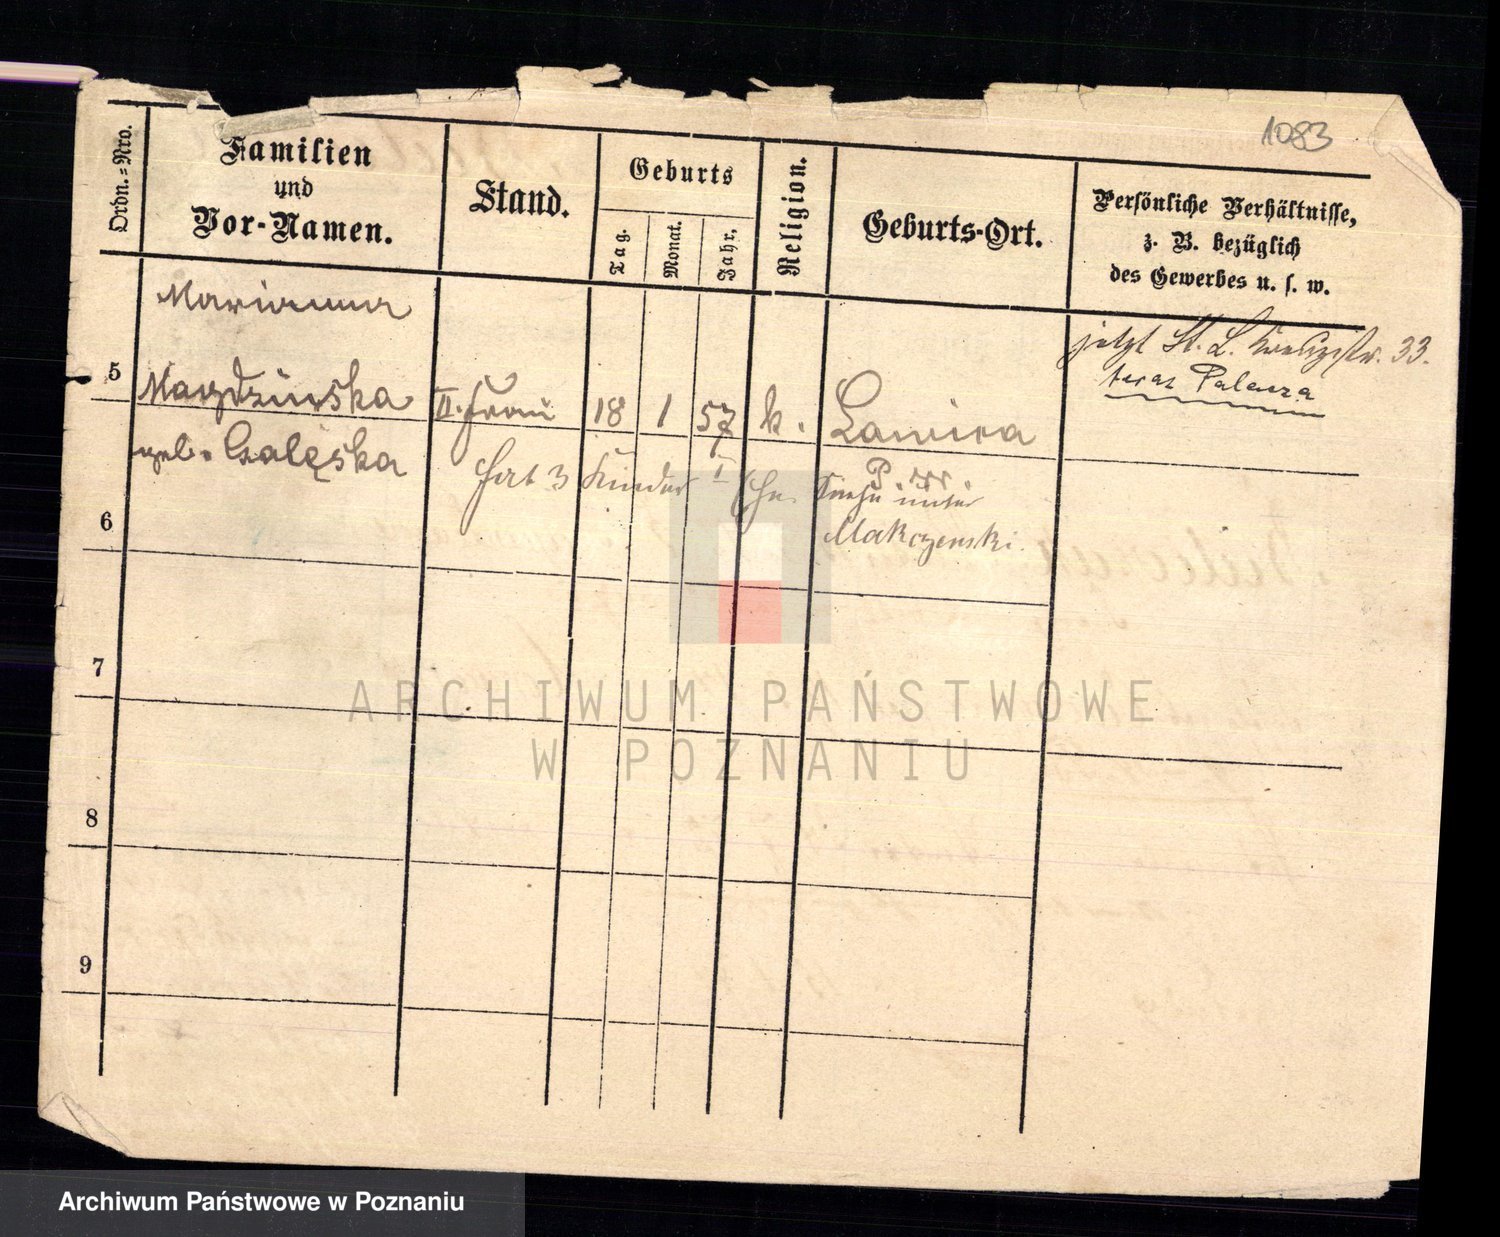 1083
Ordn.=Nro.
Familien
und
Vor-Namen.
Stand.
Geburts
Tag.
Monat.
Jahr.
Religion.
Geburts-Ort.
Persönliche Verhältnisse,
z. B. bezüglich
des Gewerbes u. s. w.
Marianna
jetzt St. L. Kreuzstr. 33.
5
Magdzinska II. Frau 18 1 57 k. Lawica
geb. Galęska
hat 3 Kinder I Ehe. Siehe unter
Makczenski.
6
7
8
9
ARCHIWUM PAŃSTWOWE
W POZNANIU
Archiwum Państwowe w Poznaniu